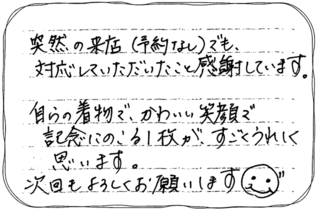 突然の来店(予約なし)でも、
対応していただいたこと感謝しています。
自らの着物で、かわいい笑顔で
記念にのこる1枚が、すごくうれしく
思います。
次回もよろしくお願いします